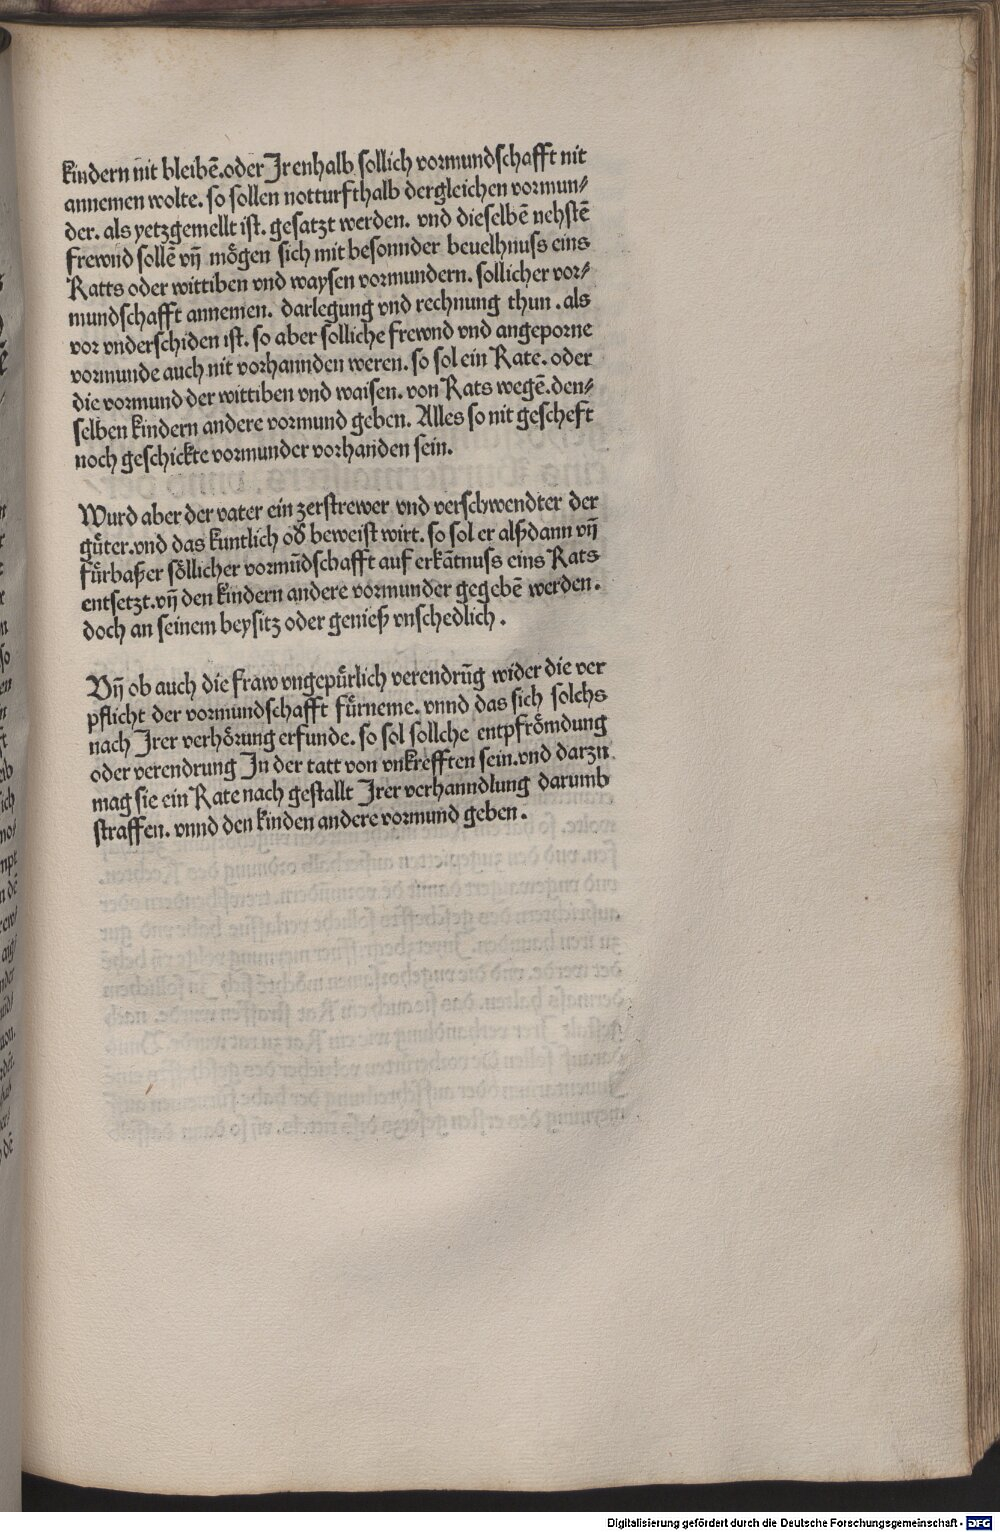 kindern nit bleibẽ.oder Jrenhalb sollich vormundschafft nit
annemen wolte. so sollen notturfthalb dergleichen vormun⸗
der. als yetzgemellt ist. gesatzt werden. vnd dieselbẽ nehstẽ
frewnd sollẽ vñ mo̊gen sich mit besonnder beuelhnuss eins
Ratts oder wittiben vnd waysen vormundern. sollicher vor⸗
mundschafft annemen. darlegung vnd rechnung thun . als
vor vnderschiden ist. so aber solliche frewnd vnd angeporne
vormunde auch nit vorhannden weren. so sol ein Rate. oder
die vormund der wittiben vnd waisen. von Rats wegẽ. den⸗
selben kindern andere vormund geben. Alles so nit gescheft
noch geschickte vormunder vorhanden sein.
Wurd aber der vater ein zerstrewer vnd verschwendter der
gu̎ter.vnd das kuntlich od᷑ beweist wirt. so sol er alßdann vñ
fu̎rbaßer so̎llicher vormũdschafft auf erkãtnuss eins Rats
entsetzt.vñ den kindern andere vormunder gegebẽ werden.
doch an seinem beysitz oder genieß vnschedlich .
Vñ ob auch die fraw vngepu̎rlich verendrũg wider die ver
pflicht der vormundschafft fu̎rneme. vnnd das sich solchs
nach Jrer verho̎rung erfunde. so sol sollche entpfro̎mdung
oder verendrung Jn der tatt von vnkrefften sein.vnd darzu
mag sie ein Rate nach gestallt Jrer verhanndlung darumb
straffen. vnnd den kinden andere vormund geben.
Digitalisierung gefördert durch die Deutsche Forschungsgemeinschaft - DFG